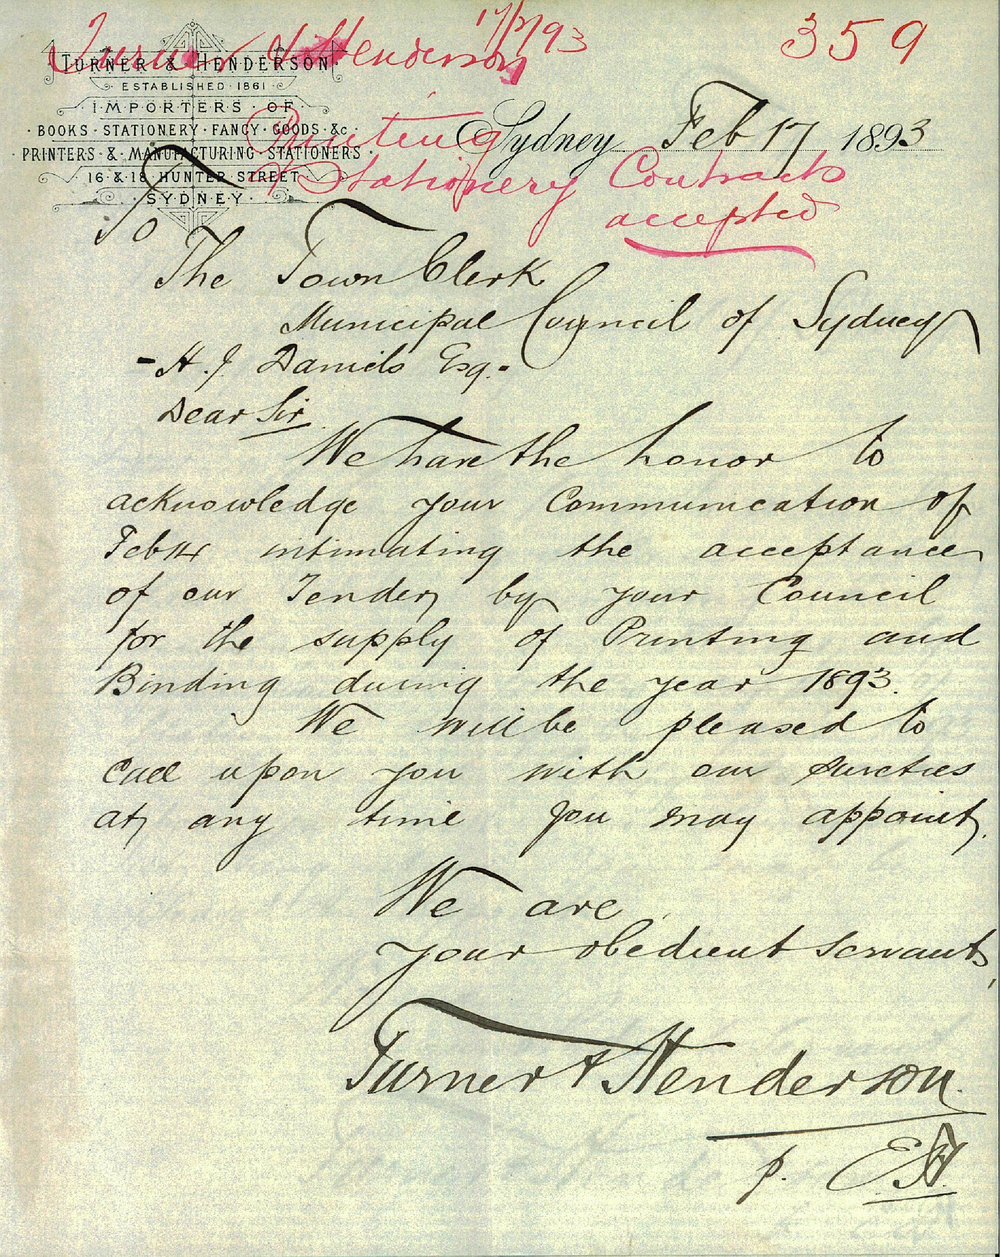 Turner & Henderson 17/2/93 359
TURNER & HENDERSON
ESTABLISHED 1861
IMPORTERS OF
BOOKS · STATIONERY · FANCY · GOODS · &c
PRINTERS · & · MANUFACTURING · STATIONERS
16 & 18 HUNTER STREET
SYDNEY
Printing
& Stationery Contracts
accepted
Sydney Feb 17 1893
To
The Town Clerk
Municipal Council of Sydney
- H. J. Daniels Esq. -
Dear Sir
We have the honor to
acknowledge your Communication of
Feb 14 intimating the acceptance
of our Tender by your Council
for the supply of Printing and
Binding during the year 1893.
We will be pleased to
call upon you with our sureties
at any time you may appoint.
We are
your obedient servants,
Turner & Henderson.
p.